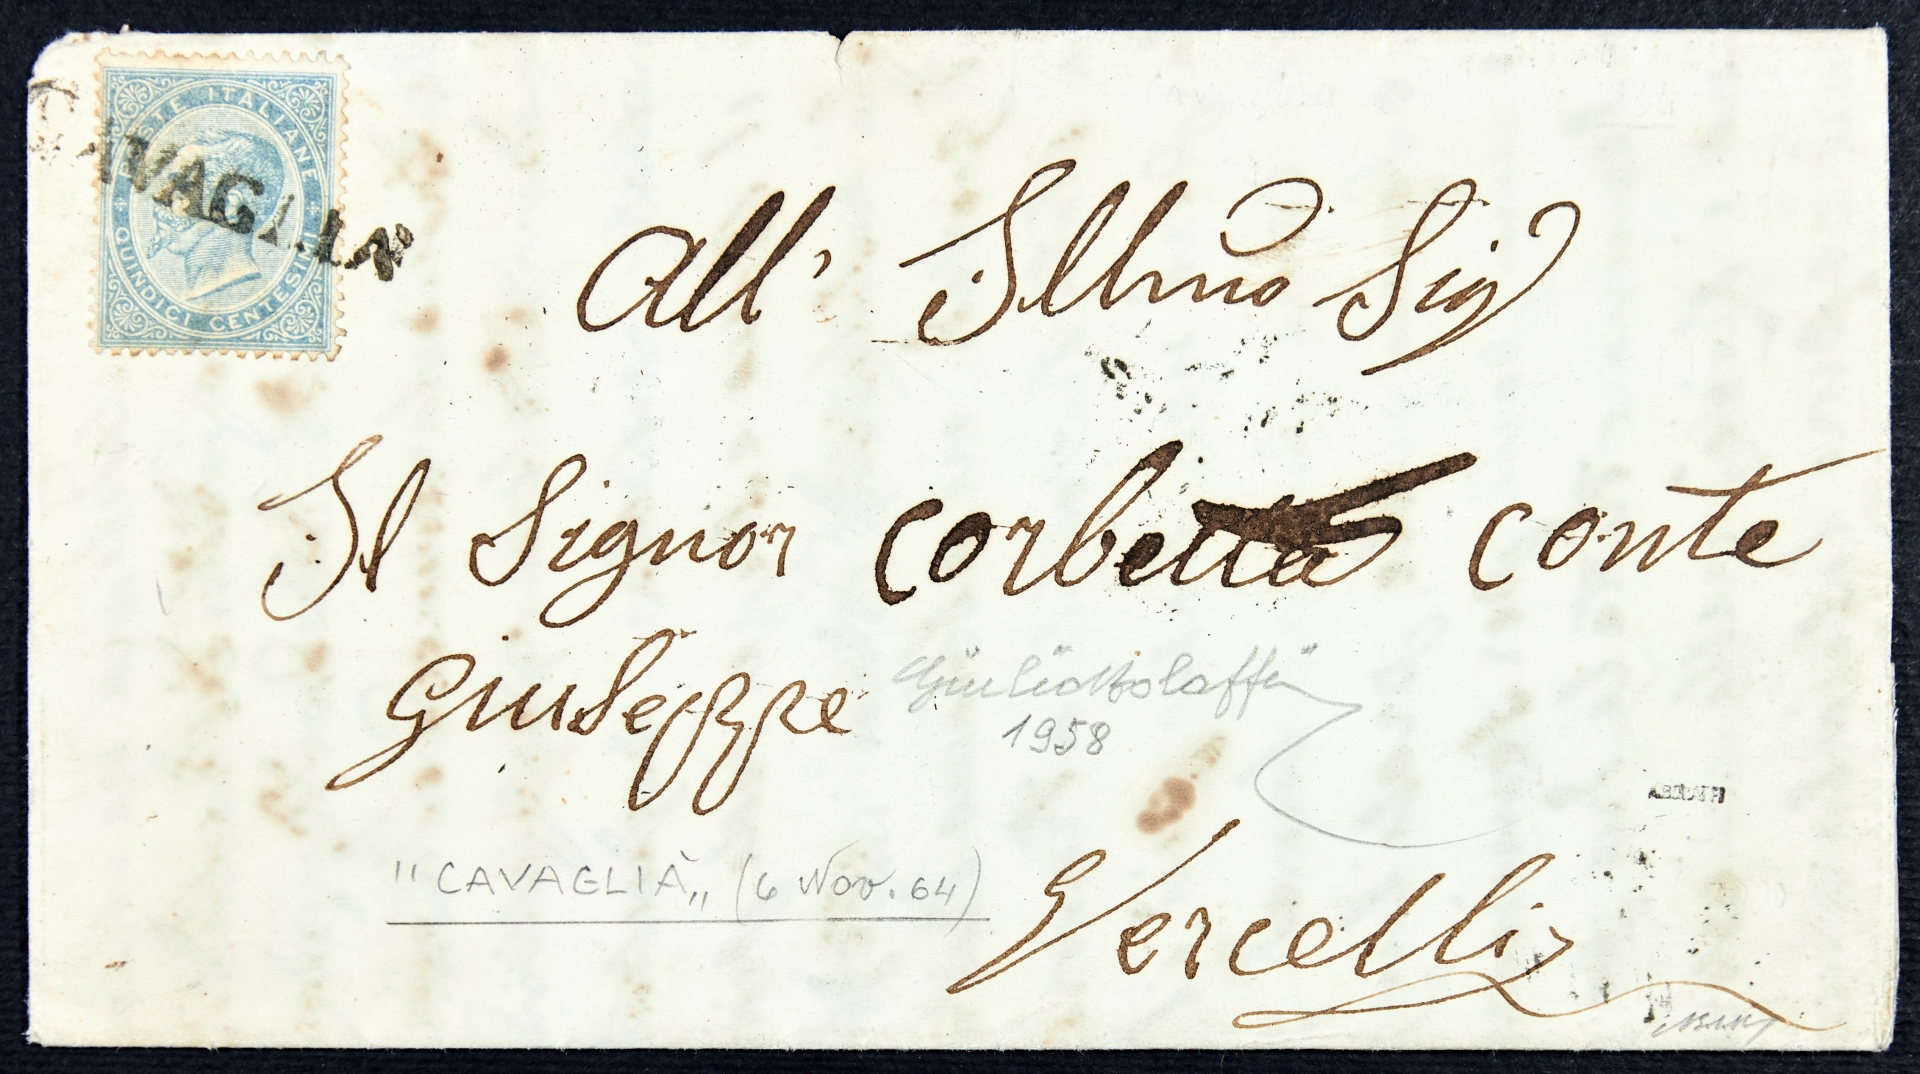 POSTE ITALIANE
QUINDICI CENTESIMI
CAVAGLIA'
All' Illmo Sig
Il Signor Corbetta Conte
Giuseppe
1958
"CAVAGLIÀ„ (6 Nov. 64)
Vercelli